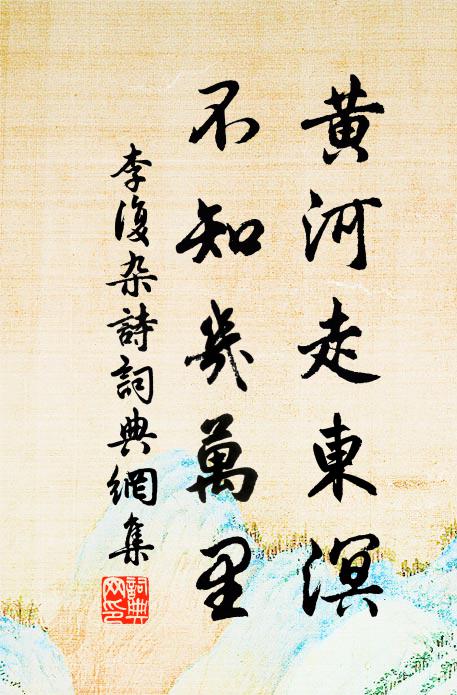 黃河走東溟
不知幾萬里
李復杂詩詞典網集
詞典